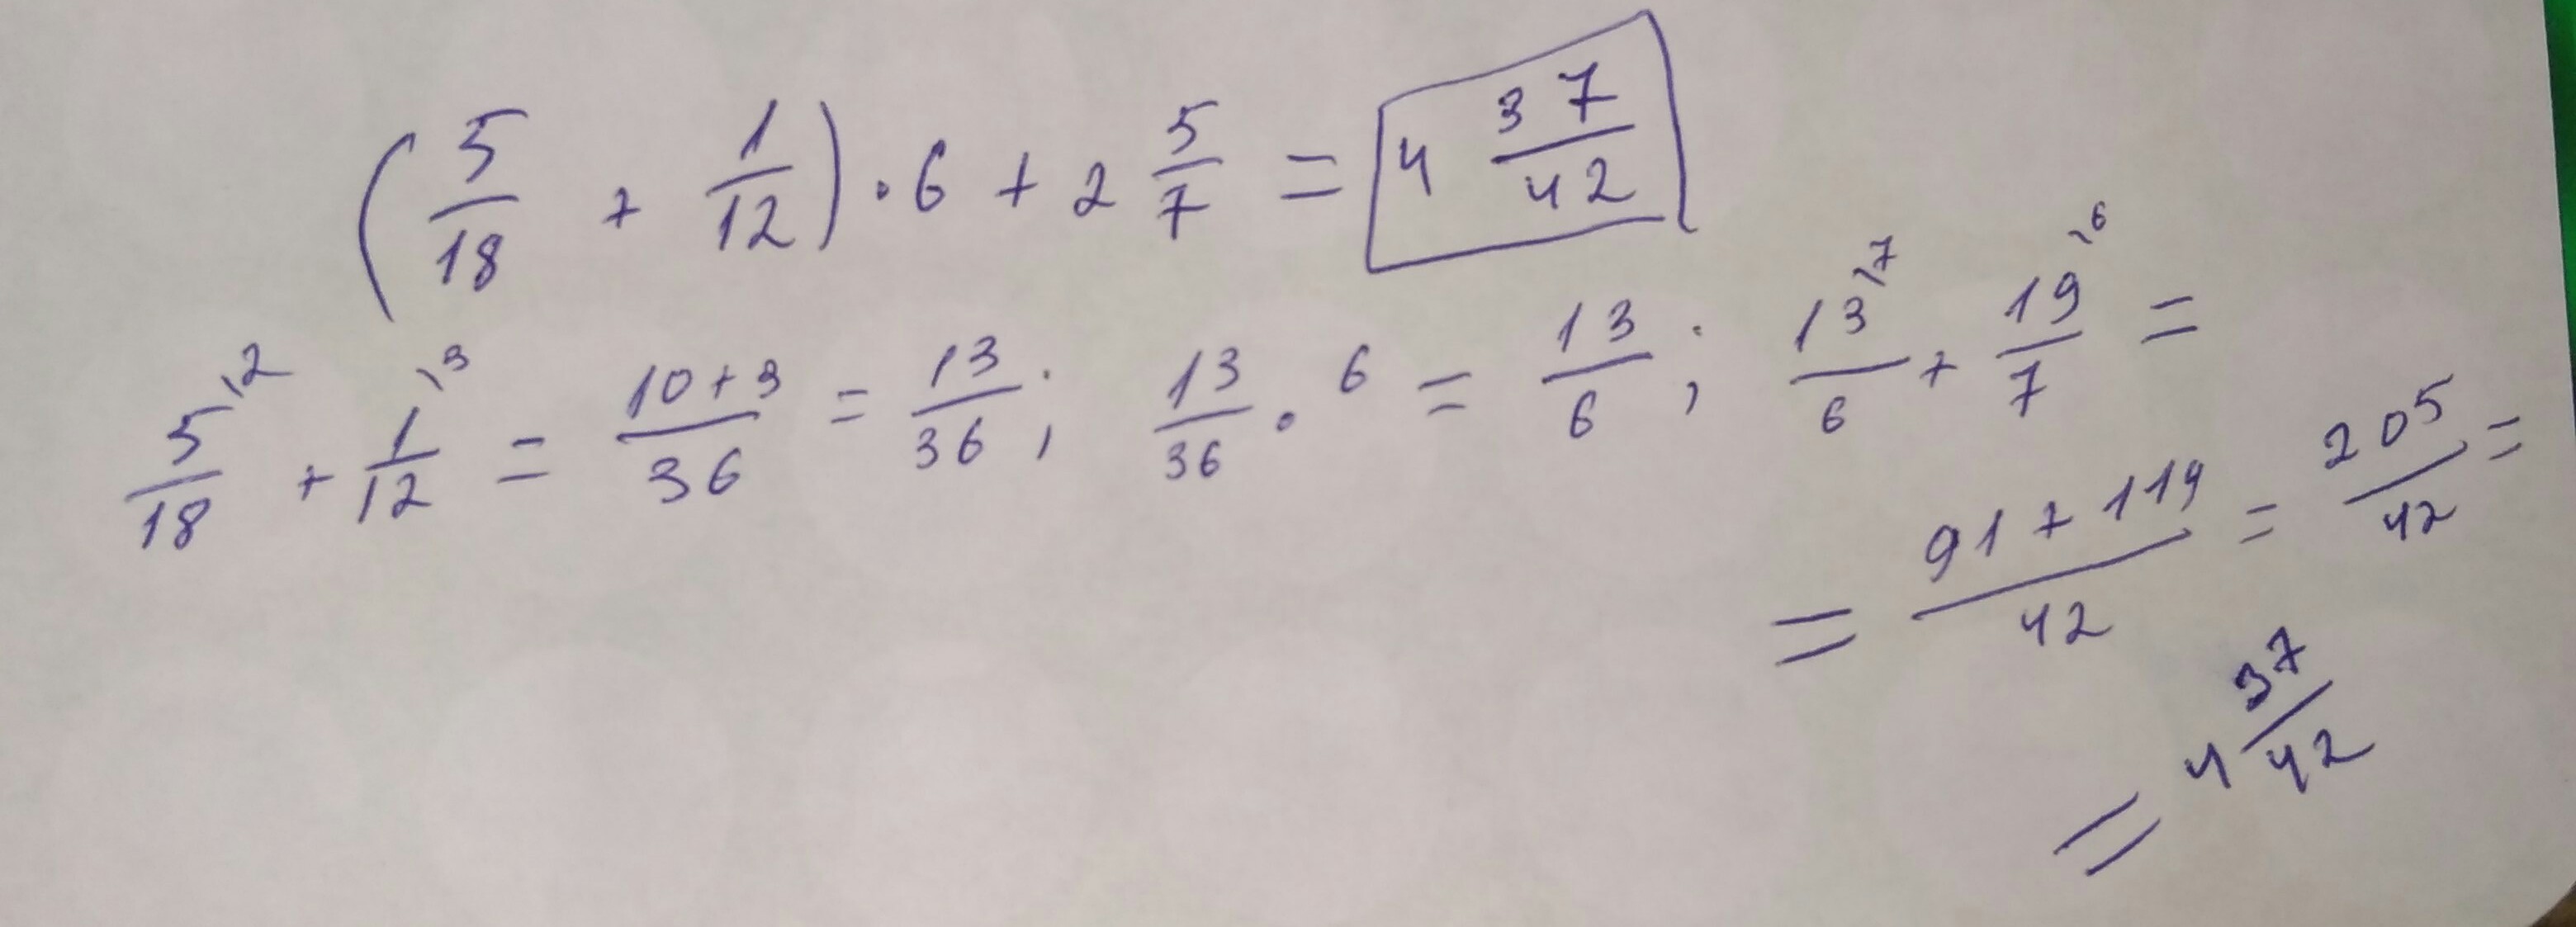 (5/18 + 1/12) · 6 + 2 5/7 = 4 37/42
5/18 \2 + 1/12 \3 = 10+3/36 = 13/36 ; 13/36 · 6 = 13/6 ; 13/6 \7 + 19/7 \6 =
= 91+114/42 = 205/42 =
= 4 37/42